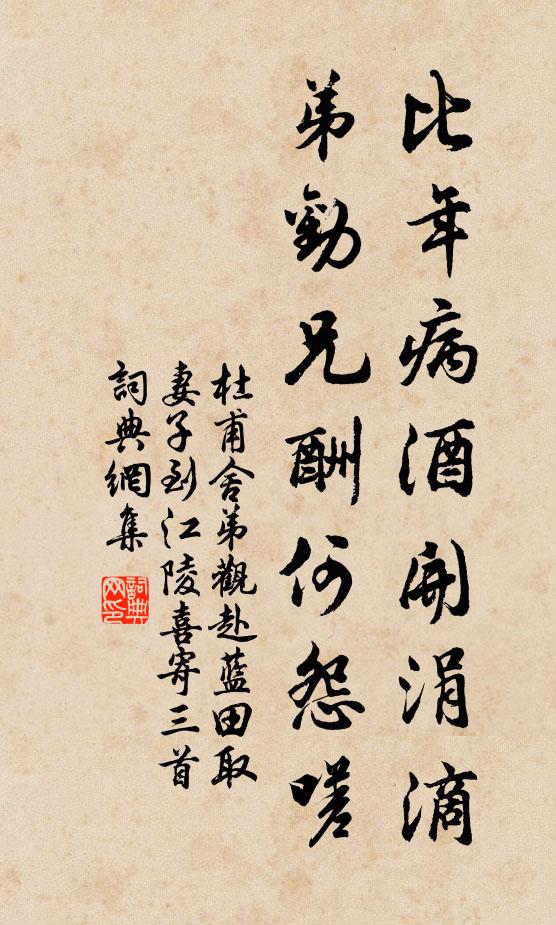 比年病酒開涓滴
弟勸兄酬何怨嗟
杜甫舍弟觀赴藍田取
妻子到江陵喜寄三首
詞典網集
詞典
网印